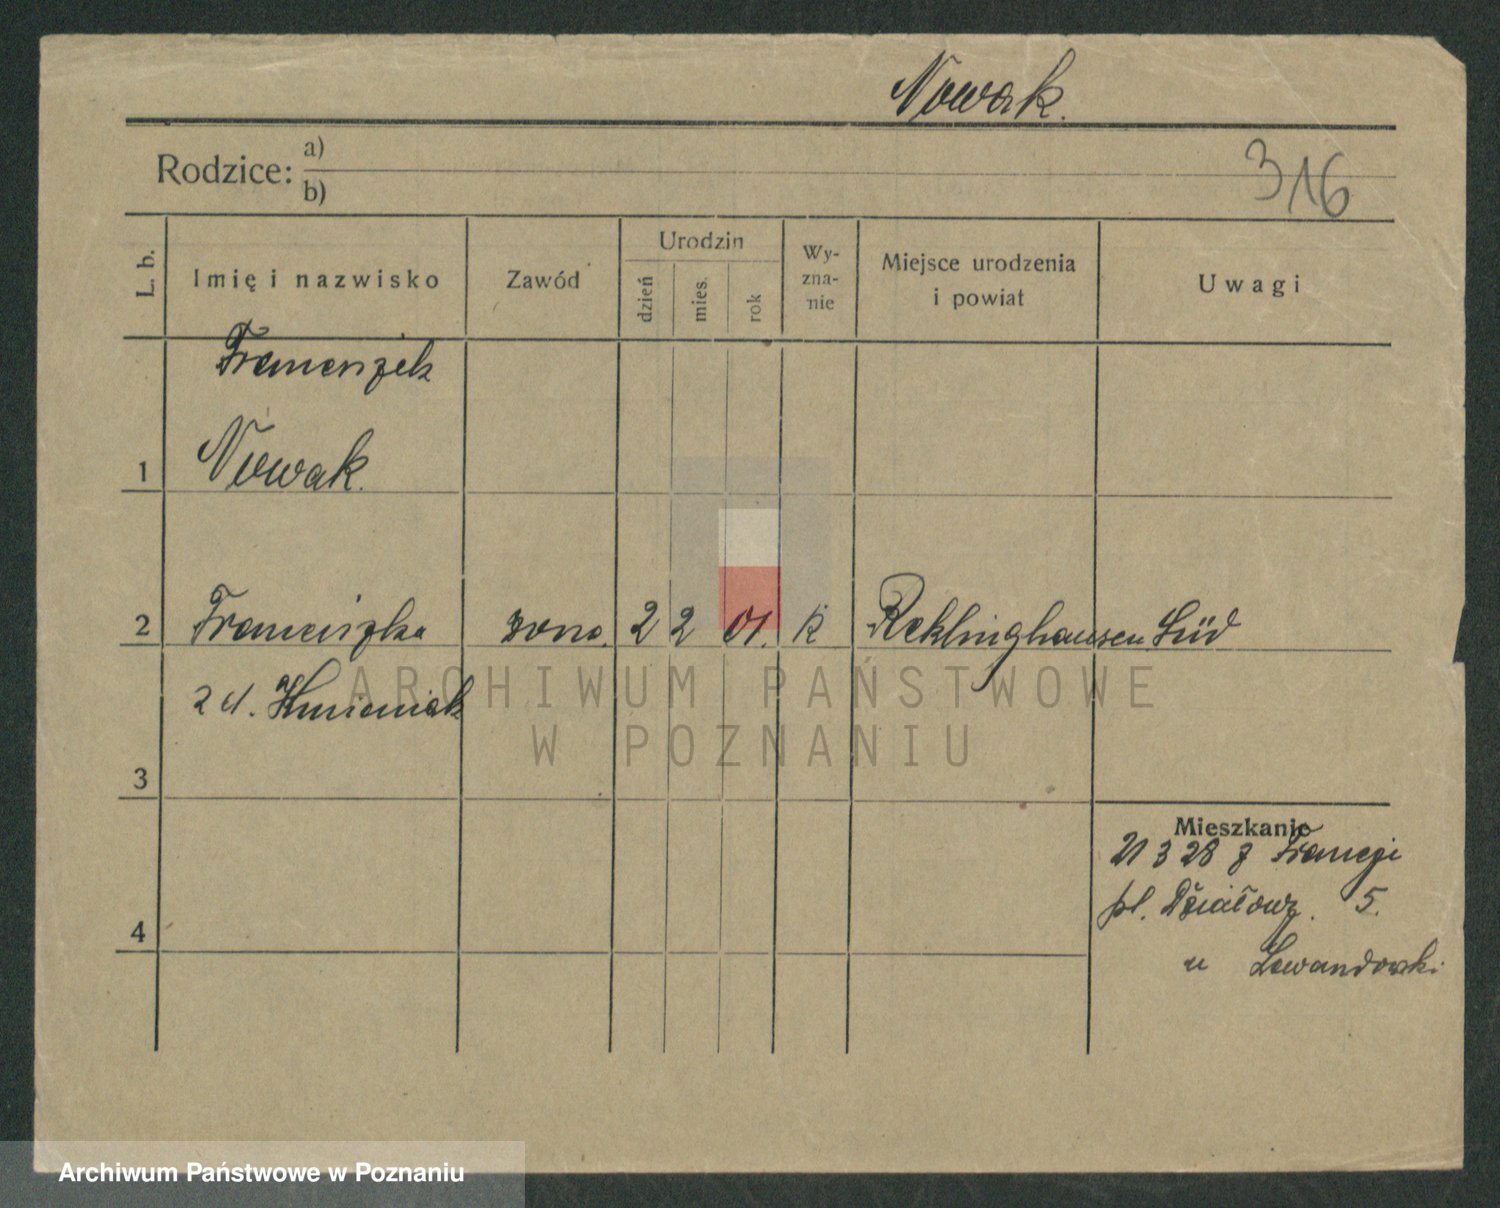 Nowak.
Rodzice: a)
b)
316
L. b. Imię i nazwisko Zawód Urodzin dzień mies. rok Wy-zna-nie Miejsce urodzenia i powiat Uwagi
Franciszek
1 Nowak.
2 Franciszka żona. 2 2 01. k Reklinghausen Süd
zd. Kmieciak
3
Mieszkanie
21 3 28 z Francji
pl. Działowy. 5.
4
u Lewandowski.
ARCHIWUM PAŃSTWOWE
W POZNANIU
Archiwum Państwowe w Poznaniu